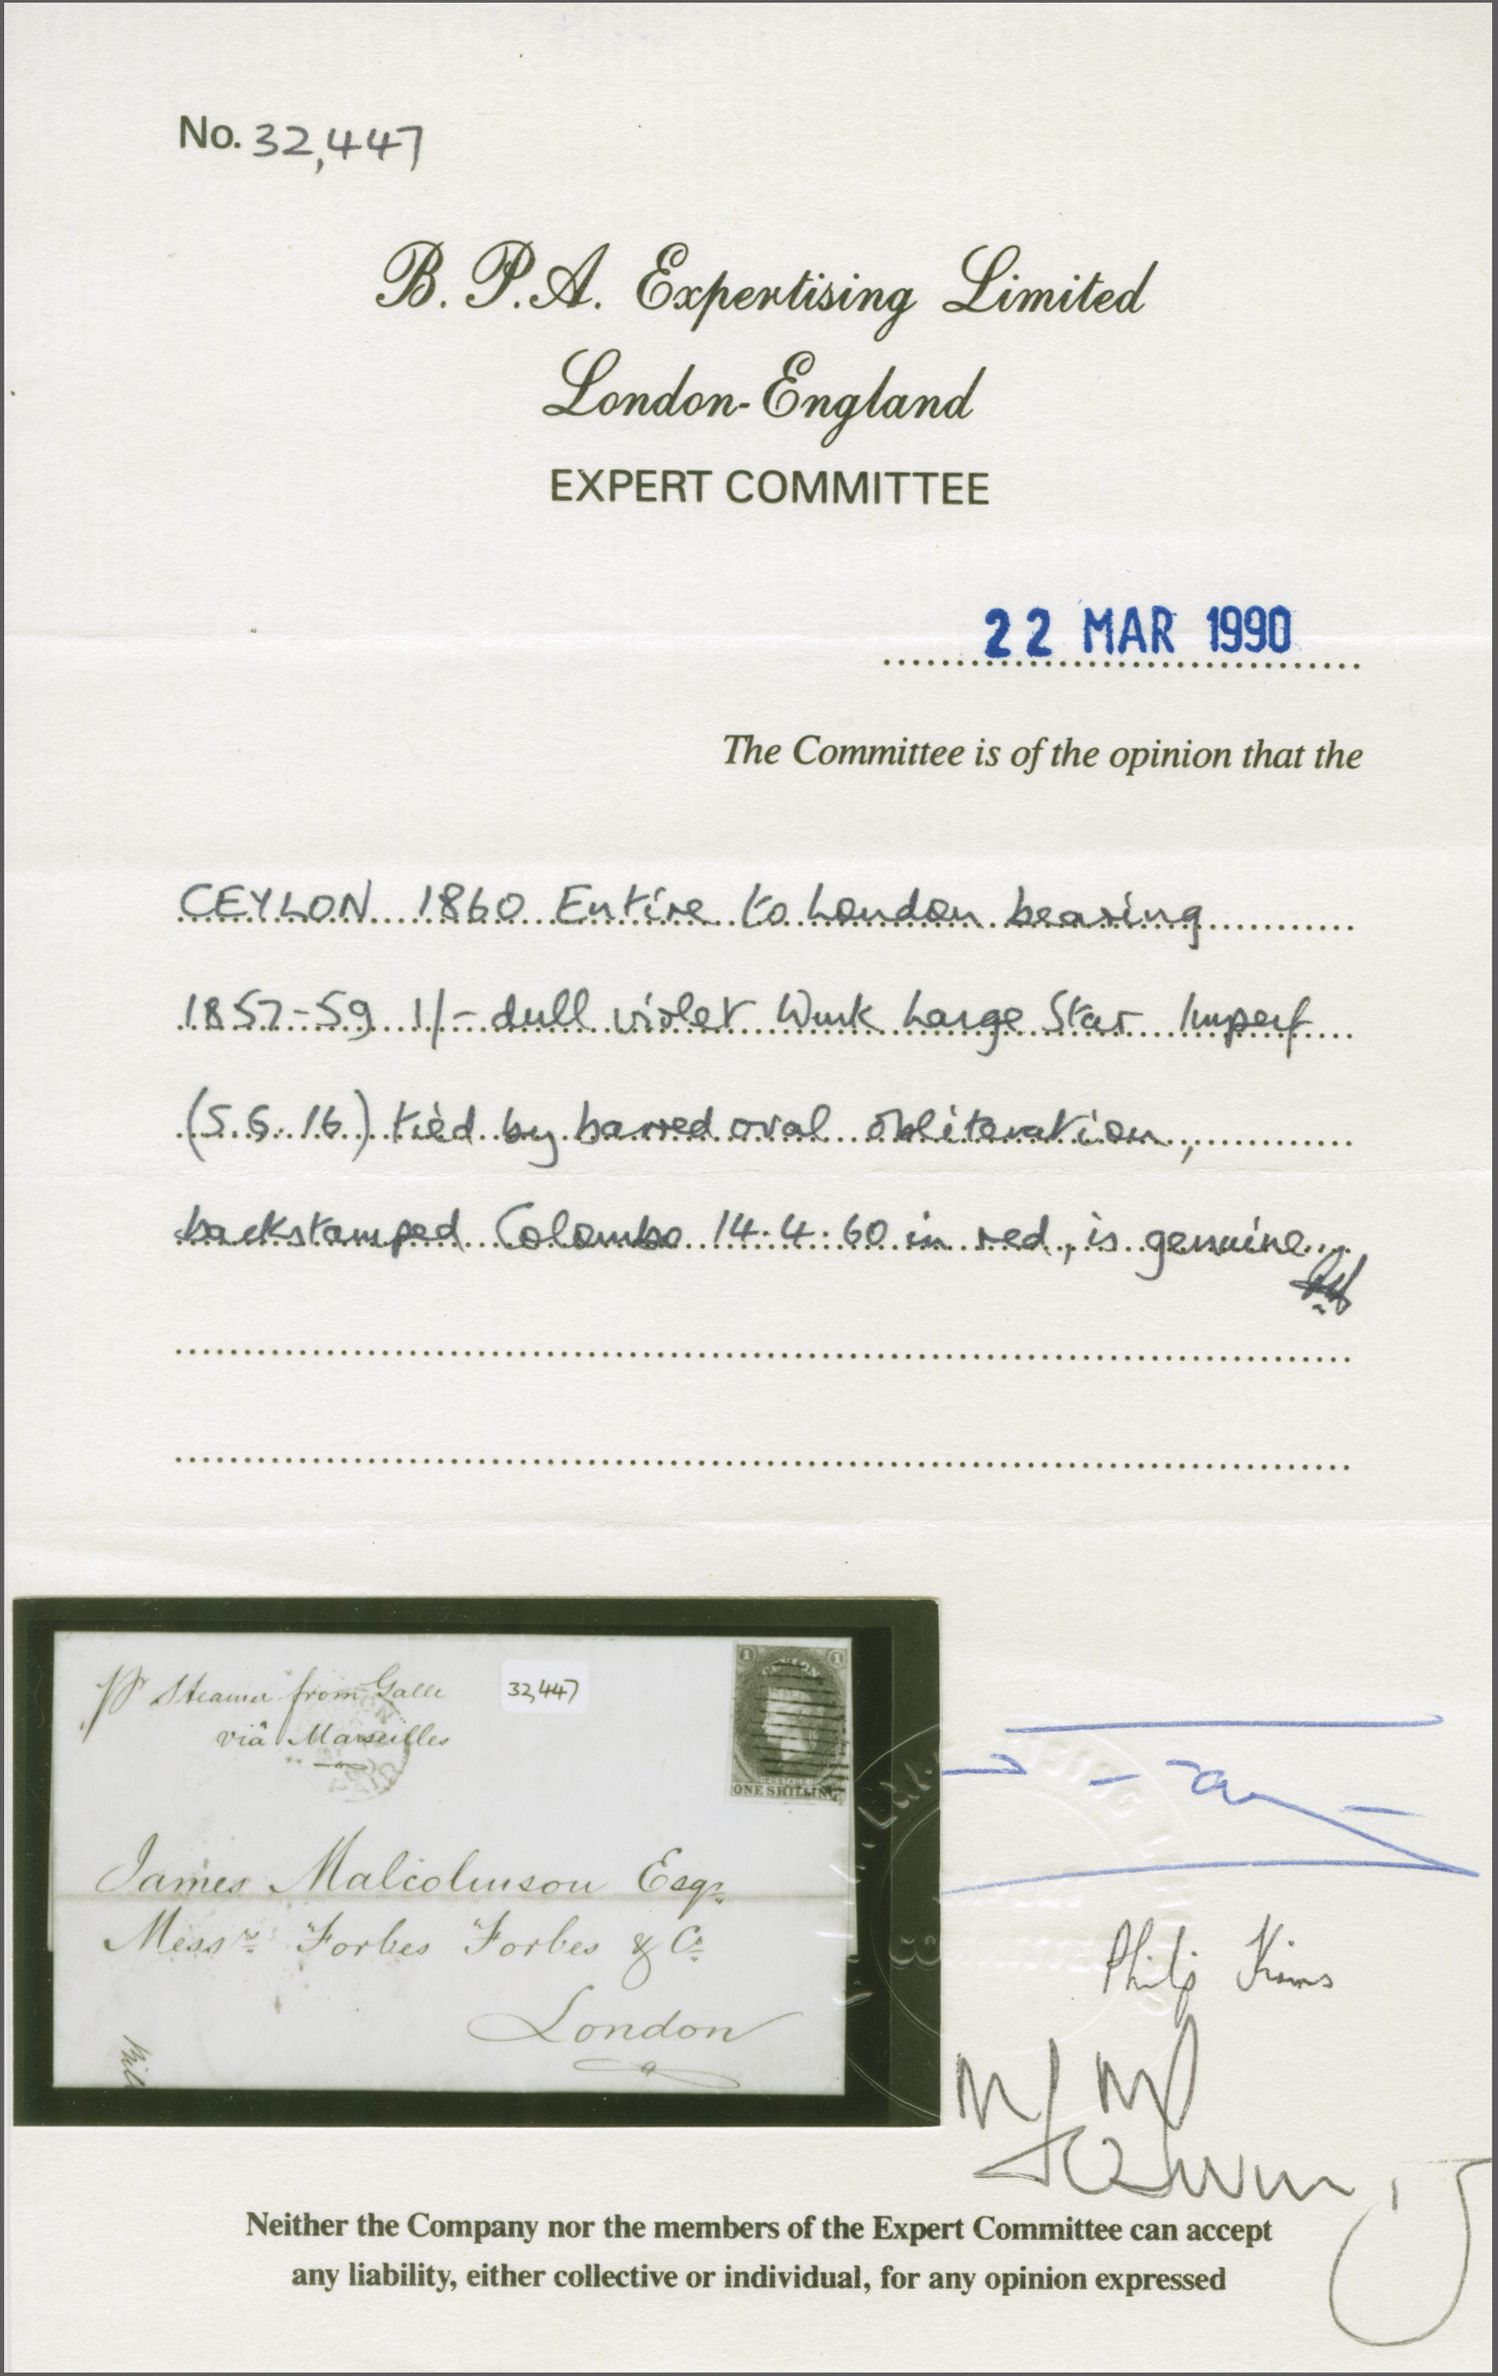 No. 32,447
B. P. A. Expertising Limited
London-England
EXPERT COMMITTEE
22 MAR 1990
The Committee is of the opinion that the
CEYLON 1860 Entire to London bearing
1857-59 1/- dull violet Wmk Large Star Imperf
(S.G. 16) tied by barred oval obliteration,
backstamped Colombo 14.4.60 in red, is genuine
pr Steamer from Galle
viâ Marseilles
32,447
1 1
CEYLON
POSTAGE
ONE SHILLING
James Malcolmson Esqr.
Messrs Forbes Forbes & Co.
London
Philip Kinns
Neither the Company nor the members of the Expert Committee can accept
any liability, either collective or individual, for any opinion expressed